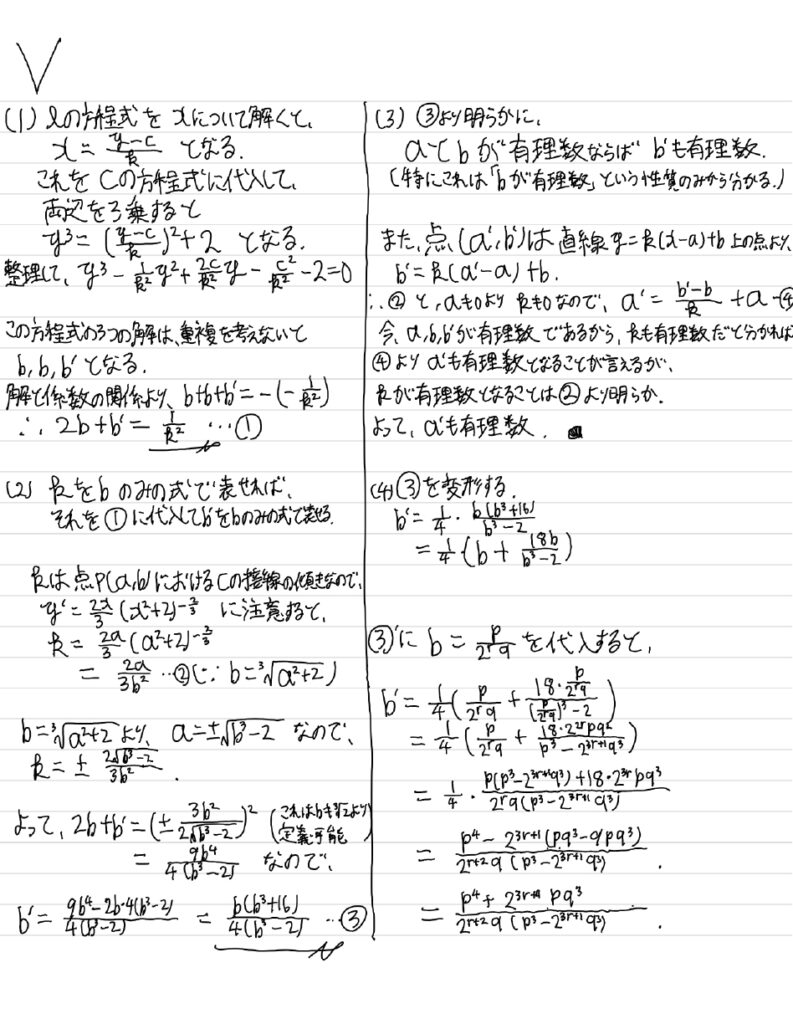 V
(1) lの方程式をxについて解くと、
x = (y-c)/k となる.
これをCの方程式に代入して、
両辺を3乗すると
y³ = ((y-c)/k)² + 2 となる.
整理して、y³ - (1/k²)y² + (2c/k²)y - c²/k² - 2 = 0
この方程式の3つの解は、重複を考えないと
b, b, b' となる.
解と係数の関係より、b+b+b' = -(-1/k²)
∴ 2b+b' = 1/k² …①
(2) kをbのみの式で表せれば、
それを①に代入してb'をbのみの式で表せる.
kは点P(a,b)におけるCの接線の傾きなので、
y' = (2x/3)(x²+2)^(-2/3) に注意すると、
k = (2a/3)(a²+2)^(-2/3)
= 2a/3b² …② (∵ b = ³√(a²+2))
b = ³√(a²+2) より、a = ±√(b³-2) なので、
k = ± 2√(b³-2)/3b² .
よって、2b+b' = (± 3b²/2√(b³-2))² (これはb≠³√2より定義可能)
= 9b⁴/4(b³-2) なので、
b' = (9b⁴-2b・4(b³-2))/4(b³-2) = b(b³+16)/4(b³-2) …③
(3) ③より明らかに、
aとbが有理数ならばb'も有理数.
(特にこれは「bが有理数」という性質のみから分かる.)
また、点(a',b')は直線y=k(x-a)+b上の点より、
b' = k(a'-a)+b.
∴ ②と、a≠0よりk≠0なので、a' = (b'-b)/k + a …④
今、a,b,b'が有理数であるから、kも有理数だと分かれば
④よりa'も有理数となることが言えるが、
kが有理数となることは②より明らか.
よって、a'も有理数. ■
(4) ③を変形する.
b' = 1/4・b(b³+16)/(b³-2)
= 1/4(b + 18b/(b³-2))
③'に b = p/2^r q を代入すると、
b' = 1/4(p/2^r q + (18・p/2^r q)/((p/2^r q)³-2))
= 1/4(p/2^r q + 18・2^2r pq²/(p³-2^(3r+1)q³))
= 1/4・(p(p³-2^(3r+1)q³)+18・2^3r pq³)/(2^r q(p³-2^(3r+1)q³))
= (p⁴-2^(3r+1)(pq³-9pq³))/(2^(r+2)q(p³-2^(3r+1)q³)) .
= (p⁴+2^(3r+4)pq³)/(2^(r+2)q(p³-2^(3r+1)q³)) .